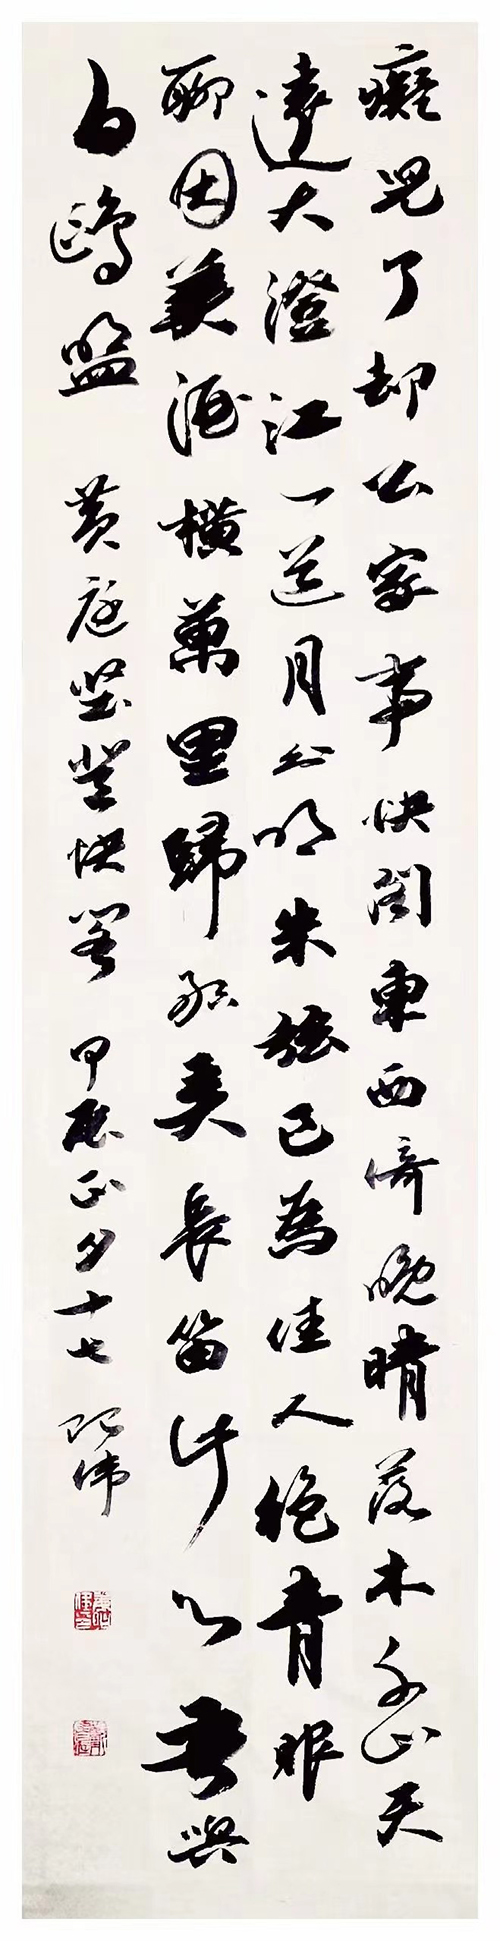 癡兒了却公家事快閣東西倚晚晴落木千山天
遠大澄江一道月分明朱弦已為佳人絕青眼
聊因美酒橫萬里歸船弄長笛此心吾與
白鷗盟 黃庭堅登快閣 甲辰正月十七 伟